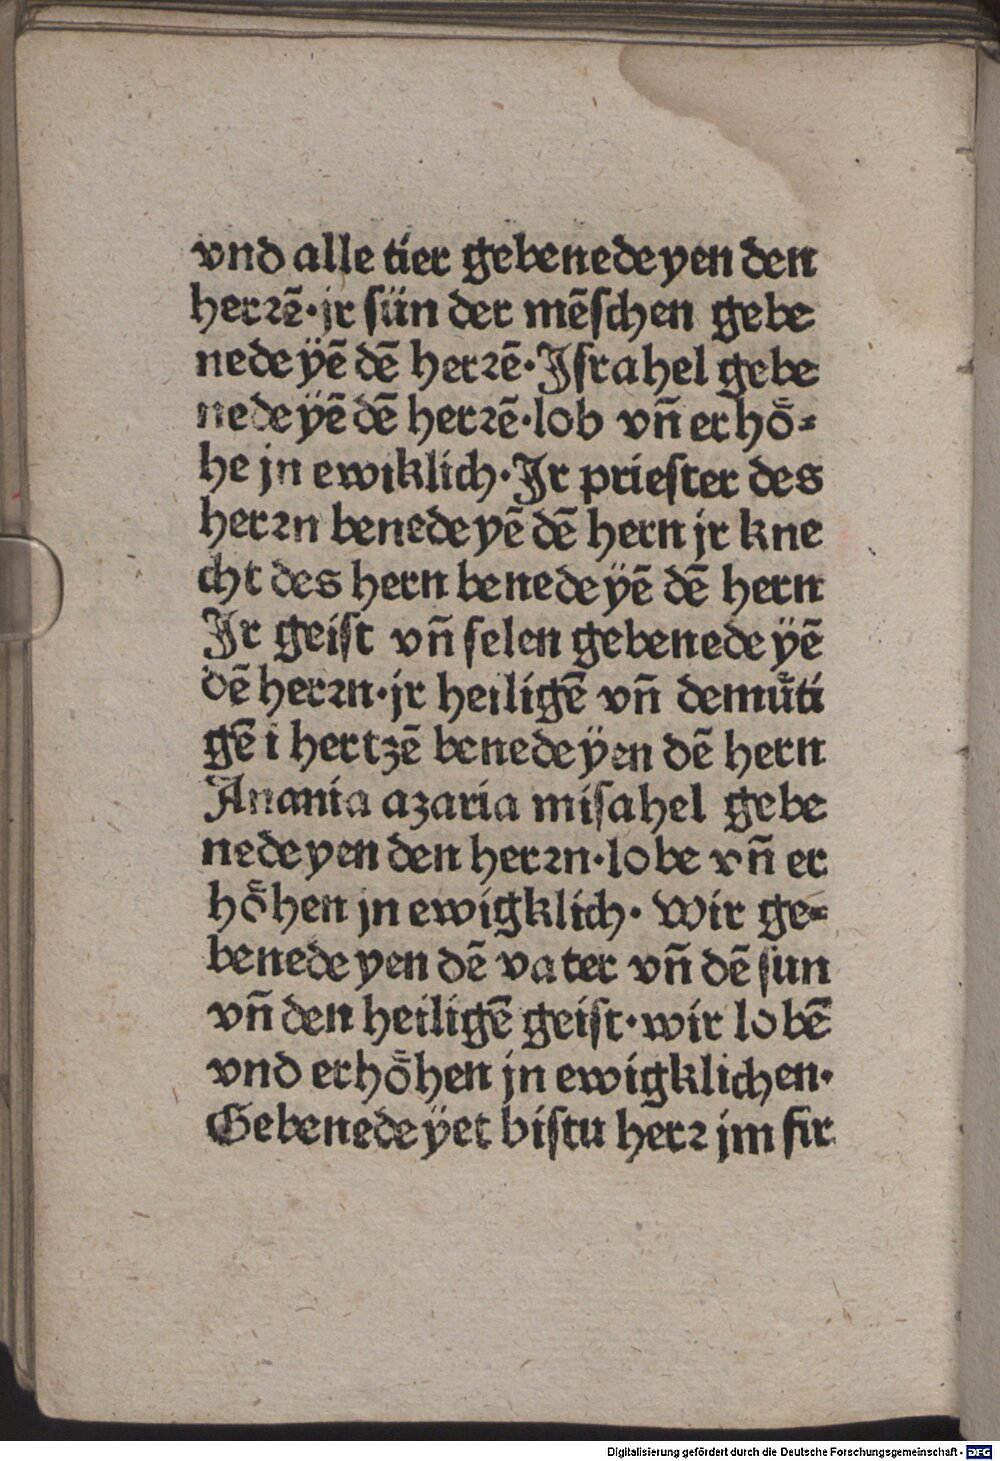 vnd alle tier gebenedeyen den
herꝛē·jr sün der mēschen gebe
nedeÿē dē herꝛē·Jsrahel gebe
nedeÿē dē herꝛē·lob vn̄ erhoͤ⸗
he jn ewiklich·Jr priester des
herꝛn benedeyē dē hern jr kne
cht des hern benedeÿē dē hern
Jr geist vn̄ selen gebenedeÿē
dē herꝛn·jr heiligē vn̄ demuͤti
gē i hertzē benedeÿen dē hern
Anania azaria misahel gebe
nedeyen den herꝛn·lobe vn̄ er
hoͤhen jn ewigklich· Wir ge⸗
benedeyen dē vater vn̄ dē sun
vn̄ den heiligē geist·wir lobē
vnd erhoͤhen jn ewigklichen·
Gebenedeÿet bistu herꝛ jm fir
Digitalisierung gefördert durch die Deutsche Forschungsgemeinschaft - DFG